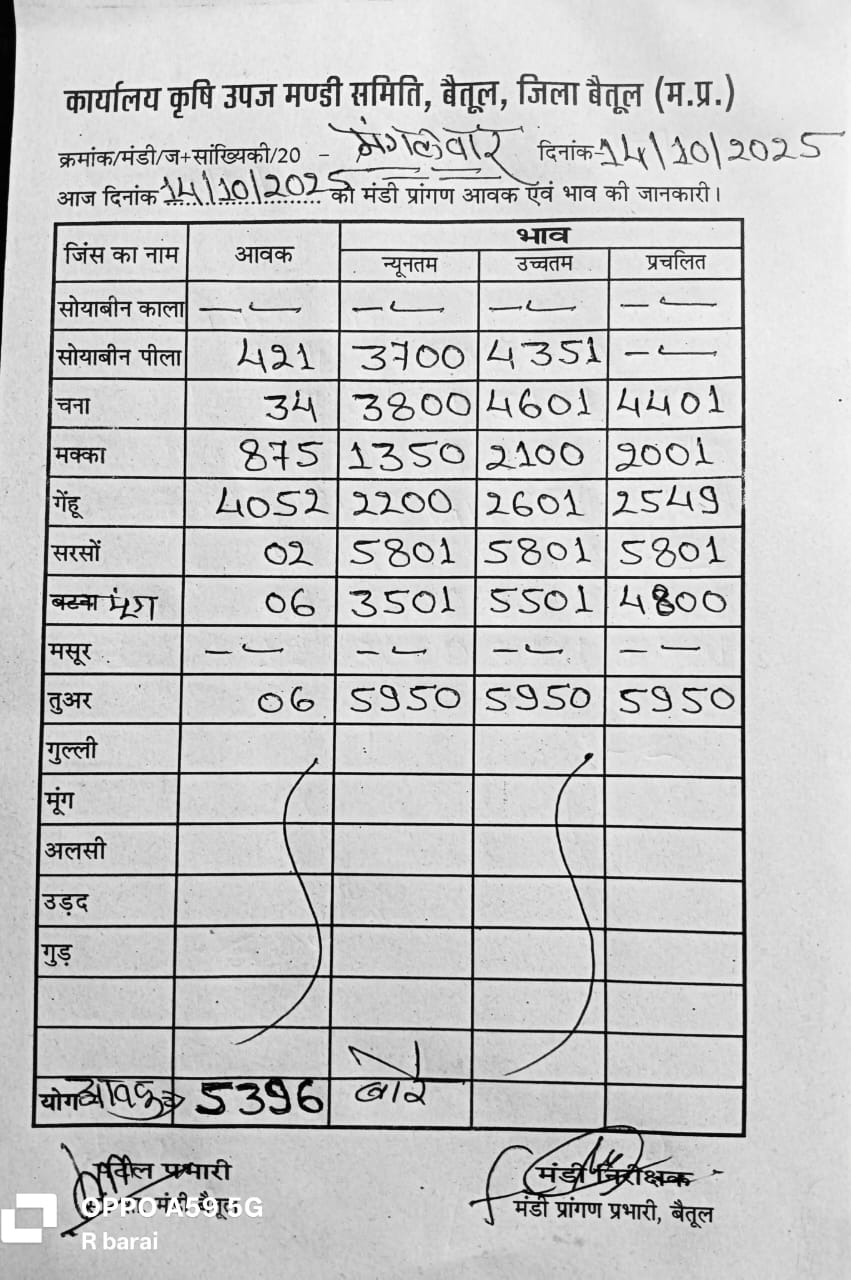 कार्यालय कृषि उपज मण्डी समिति, बैतूल, जिला बैतूल (म.प्र.)
क्रमांक/मंडी/ज+सांख्यिकी/20 - मंगलवार दिनांक-14/10/2025
आज दिनांक 14/10/2025 को मंडी प्रांगण आवक एॅवं भाव की जानकारी।
जिंस का नाम आवक भाव
न्यूनतम उच्चतम प्रचलित
सोयाबीन काला -- -- -- --
सोयाबीन पीला 421 3700 4351 --
चना 34 3800 4601 4401
मक्का 875 1350 2100 2001
गेंहू 4052 2200 2601 2549
सरसों 02 5801 5801 5801
बटना मूंग 06 3501 5501 4800
मसूर -- -- -- --
तुअर 06 5950 5950 5950
गुल्ली
मूंग
अलसी
उड़द
गुड़
योग आवक 5396 बोरे
प्रभारी मंडी निरीक्षक
मंडी बैतूल मंडी प्रांगण प्रभारी, बैतूल
OPPO A59 5G
R barai